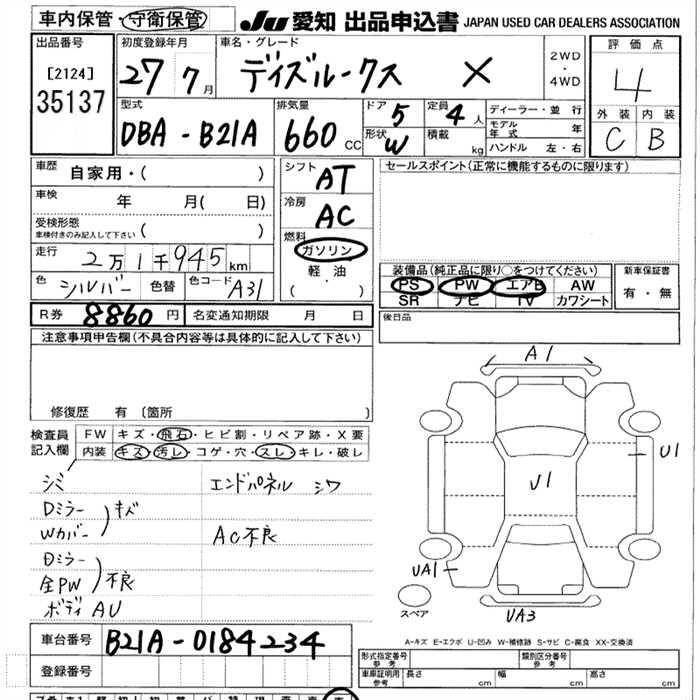 車内保管・守衛保管 JU 愛知 出品申込書 JAPAN USED CAR DEALERS ASSOCIATION
出品番号 初度登録年月 車名・グレード 評価点
[2124] 27 7月 デイズルークス X 2WD・4WD 4
35137 型式 排気量 ドア 5 定員 4人 ディーラー・並行 外装 内装
DBA-B21A 660cc 形状 W 積載 kg モデル年式 年 C B
ハンドル 左・右
車歴 自家用・( ) シフト AT セールスポイント(正常に機能するものに限ります)
車検 年 月( 日) 冷房 AC
受検形態 ( )
車検付きのみ記入して下さい 燃料
走行 2万1千945km ガソリン
色 シルバー 色替 色コード A31 軽油
( ・ )
装備品(純正品に限り○をつけてください) 新車保証書
PS PW エアB AW 有・無
SR ナビ TV カワシート
R券 8860円 名変通知期限 月 日 後日品
注意事項申告欄(不具合内容等は具体的に記入して下さい)
修復歴 有 〔箇所 〕
検査員 FW キズ・飛石・ヒビ割・リペア跡・X要
記入欄 内装 キズ・汚レ・コゲ・穴・スレ・キレ・破レ
シミ エンドパネル シワ
Dミラー キズ
Wカバー AC不良
Dミラー
全PW 不良
ボディ AU
A1
U1
U1
UA1
スペア
UA3
A-キズ E-エクボ U-凹み W-補修跡 S-サビ C-腐食 XX-交換済
車台番号 B21A-0184234
登録番号
形式指定番号 参考 類別区分番号 参考
車庫証明用 参考 長さ cm 幅 cm 高さ cm